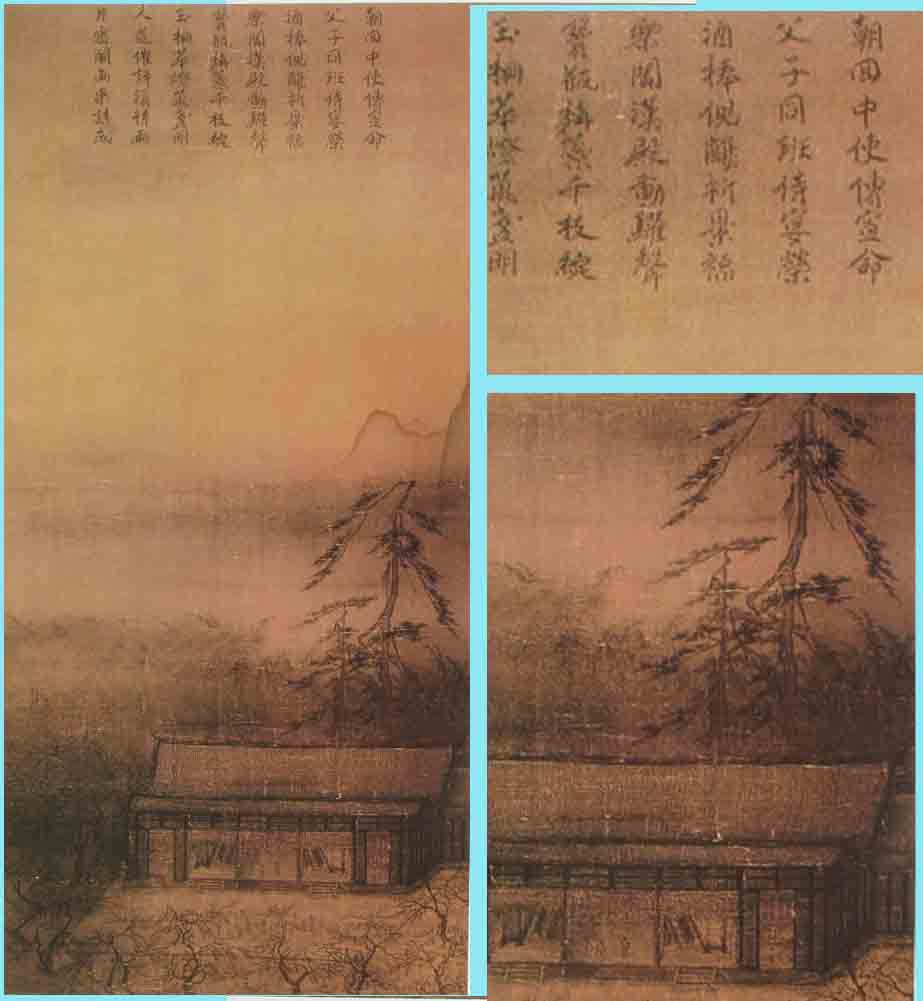 朝回中使傳宣命
父子同班侍宴榮
酒捧倪觴祈景福
樂聞漢殿動驩聲
寶瓶梅蘂千枝綻
玉柵華燈萬盞明
人道催詩須待雨
片雲閣雨果詩成
朝回中使傳宣命
父子同班侍宴榮
酒捧倪觴祈景福
樂聞漢殿動驩聲
寶瓶梅蘂千枝綻
玉柵華燈萬盞明